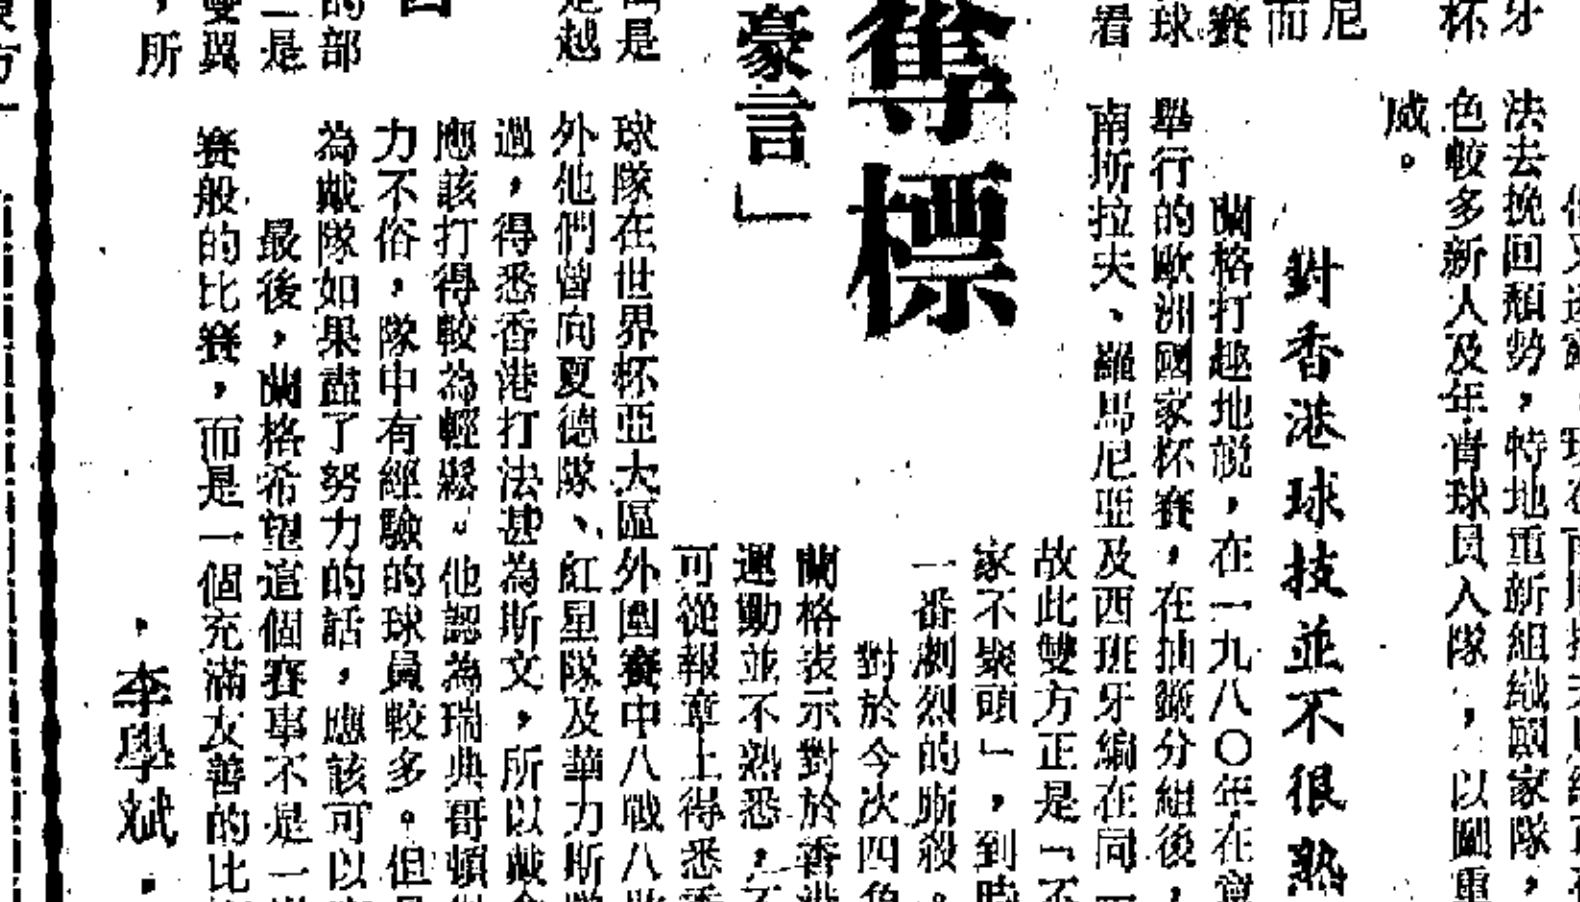 牙
杯
尼
而
賽
球
看
法去挽回頹勢，特地重新組織國家隊，
色較多新人及年青球員入隊，以圖重
威。
對香港球技並不很熟
蘭格打趣地説，在一九八〇年在
舉行的歐洲國家杯賽，在抽籤分組後，
南斯拉夫、羅馬尼亞及西班牙編在同一
故此雙方正是「不
家不聚頭」，到時
一番劇烈的廝殺。
奪標
豪言」
對於今次四角
蘭格表示對於香港
運動並不熟悉，不
可從報章上得悉
是
越
球隊在世界杯亞大區外圍賽中八戰八
外他們曾向夏德隊、紅星隊及華力斯隊
過，得悉香港打法甚為斯文，所以戴
應該打得較為輕鬆。他認為瑞典哥頓
力不俗，隊中有經驗的球員較多。但
的部
為戴隊如果盡了努力的話，應該可以
是
最後，蘭格希望這個賽事不是一
翼
賽般的比賽，而是一個充滿友善的比
，所
・李學斌・